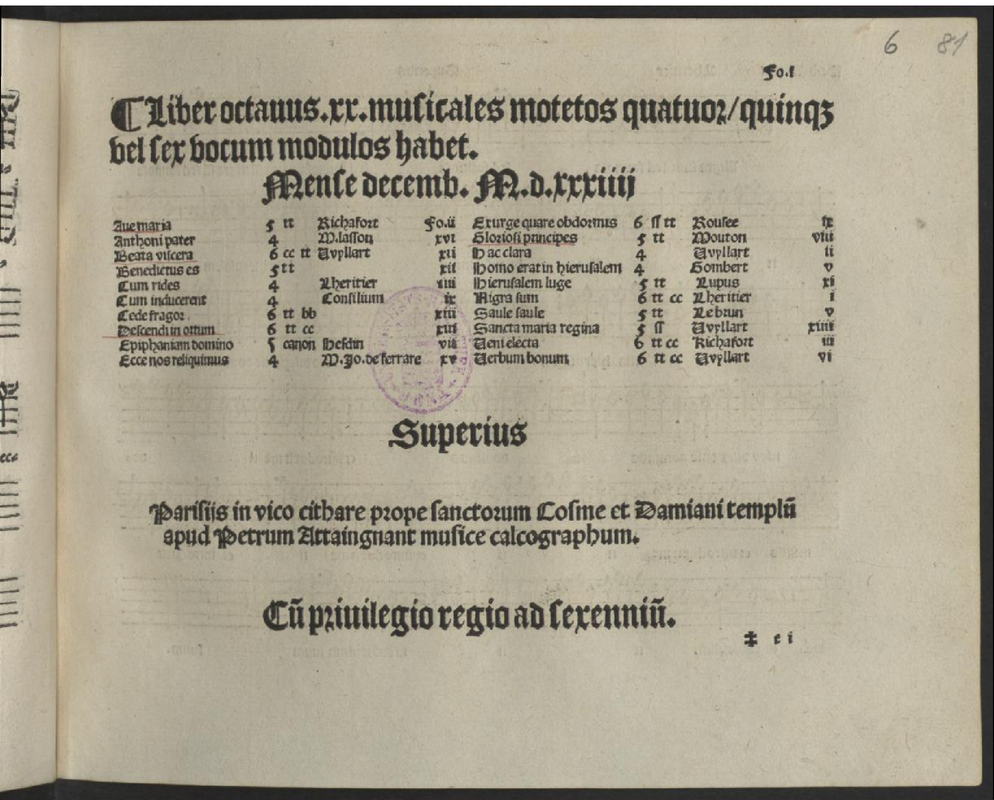 6 81
Fo.i
¶ Liber octauus.xx.musicales motetos quatuor/quinqꝫ
vel sex vocum modulos habet.
Mense decemb. M.d.xxxiiij
Aue maria 5 tt Richafort Fo.ii Exurge quare obdormis 6 ss tt Rousee ix
Anthoni pater 4 M.lasson xvi Gloriosi principes 5 tt Mouton viii
Beata viscera 6 cc tt Vvyllart xii Hac clara 4 Vvyllart ii
Benedictus es 5 tt xii Homo erat in hierusalem 4 Gombert v
Cum rides 4 Lheritier iiii Hierusalem luge 5 tt Lupus xi
Cum inducerent 4 Consilium ix Nigra sum 6 tt cc Lheritier i
Cede fragor 6 tt bb xiii Saule saule 5 tt Le brun v
Descendi in ortum 6 tt cc xvi Sancta maria regina 5 ss Vvyllart xiiii
Epiphaniam domino 5 canon Hesdin vii Veni electa 6 tt cc Richafort iii
Ecce nos reliquimus 4 M.Jo.de ferrare xv Verbum bonum 6 tt cc Vvyllart vi
Superius
Parisijs in vico cithare prope sanctorum Cosme et Damiani templū
apud Petrum Attaingnant musice calcographum.
Cū priuilegio regio ad sexenniū.
‡ e i